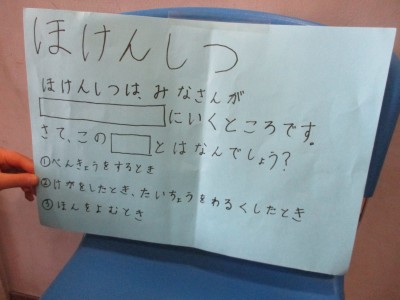 ほけんしつ
ほけんしつは、みなさんが
にいくところです。
さて、この とはなんでしょう?
①べんきょうをするとき
②けがをしたとき、たいちょうをわるくしたとき
③ほんをよむとき